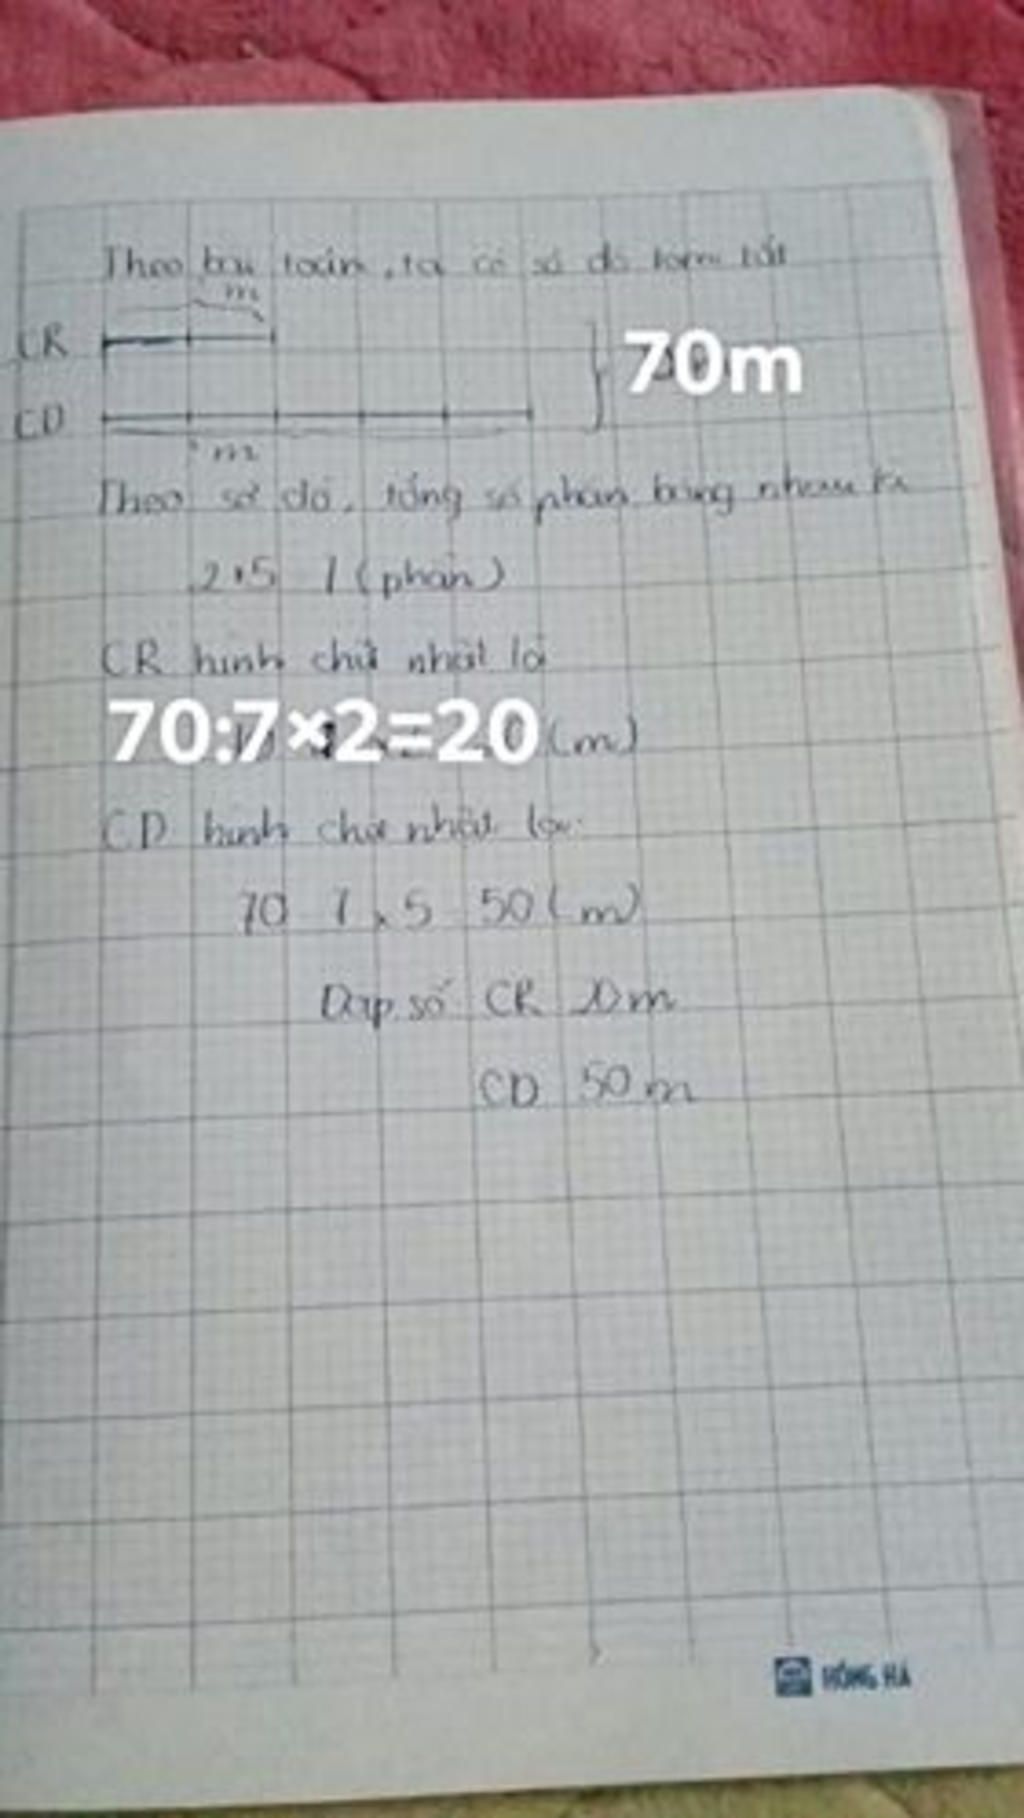 Theo bài toán, ta có sơ đồ tóm tắt
m
CR
70m
CD
m
Theo sơ đồ, tổng số phần bằng nhau là
2+5 7 (phần)
CR hình chữ nhật là
70:7×2=20 (m)
CD hình chữ nhật là:
70 7 x 5 50 (m)
Đáp số CR 20m
CD 50m
HỒNG HÀ